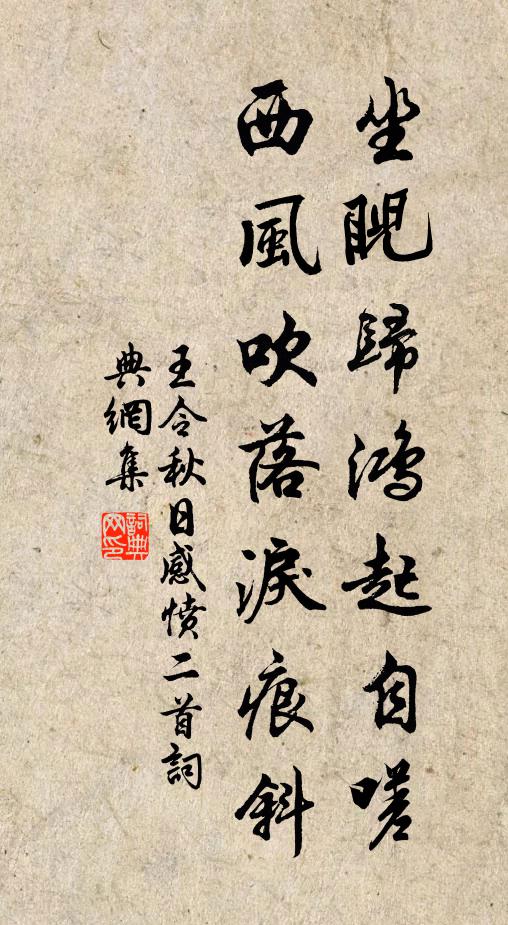 坐睨歸鴻起自嗟
西風吹落淚痕斜
王令秋日感憤二首詞
典網集
詞典網印